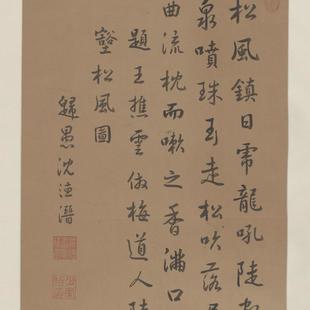 松風鎮日龍吼陡
泉噴珠玉走松吹落
曲流枕而嗽之香滿口
題王樵雲倣梅道人陡
壑松風圖
歸愚沈德潛